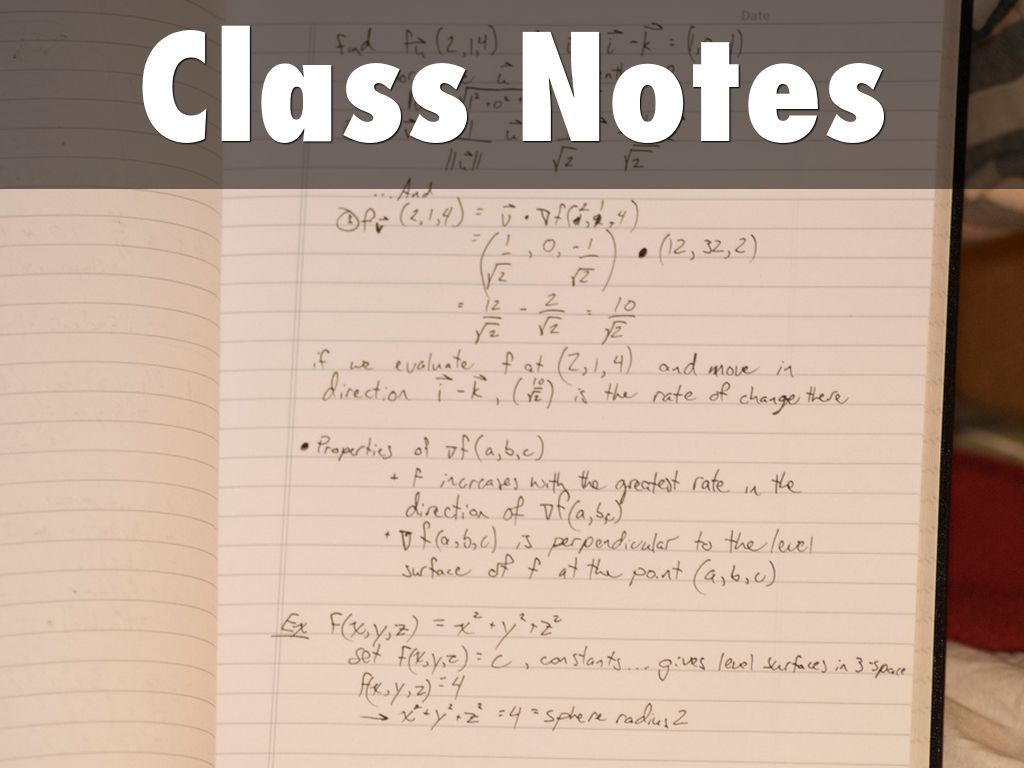 Class Notes
Date
find f_u⃗ (2,1,4) i⃗ - k⃗ = (1, -1)
√1² + 0² +
u⃗
||u⃗|| √2 √2
...And
③ f_v⃗ (2,1,4) = v⃗ · ∇f(2,1,4)
= (1/√2, 0, -1/√2) • (12, 32, 2)
= 12/√2 - 2/√2 = 10/√2
if we evaluate f at (2,1,4) and move in
direction i⃗ - k⃗, (10/√2) is the rate of change there
• Properties of ∇f(a,b,c)
+ f increases with the greatest rate in the
direction of ∇f(a,b,c)
+ ∇f(a,b,c) is perpendicular to the level
surface of f at the point (a,b,c)
Ex f(x,y,z) = x² + y² + z²
set f(x,y,z) = c, constants... gives level surfaces in 3-space
f(x,y,z) = 4
→ x² + y² + z² = 4 = sphere radius 2